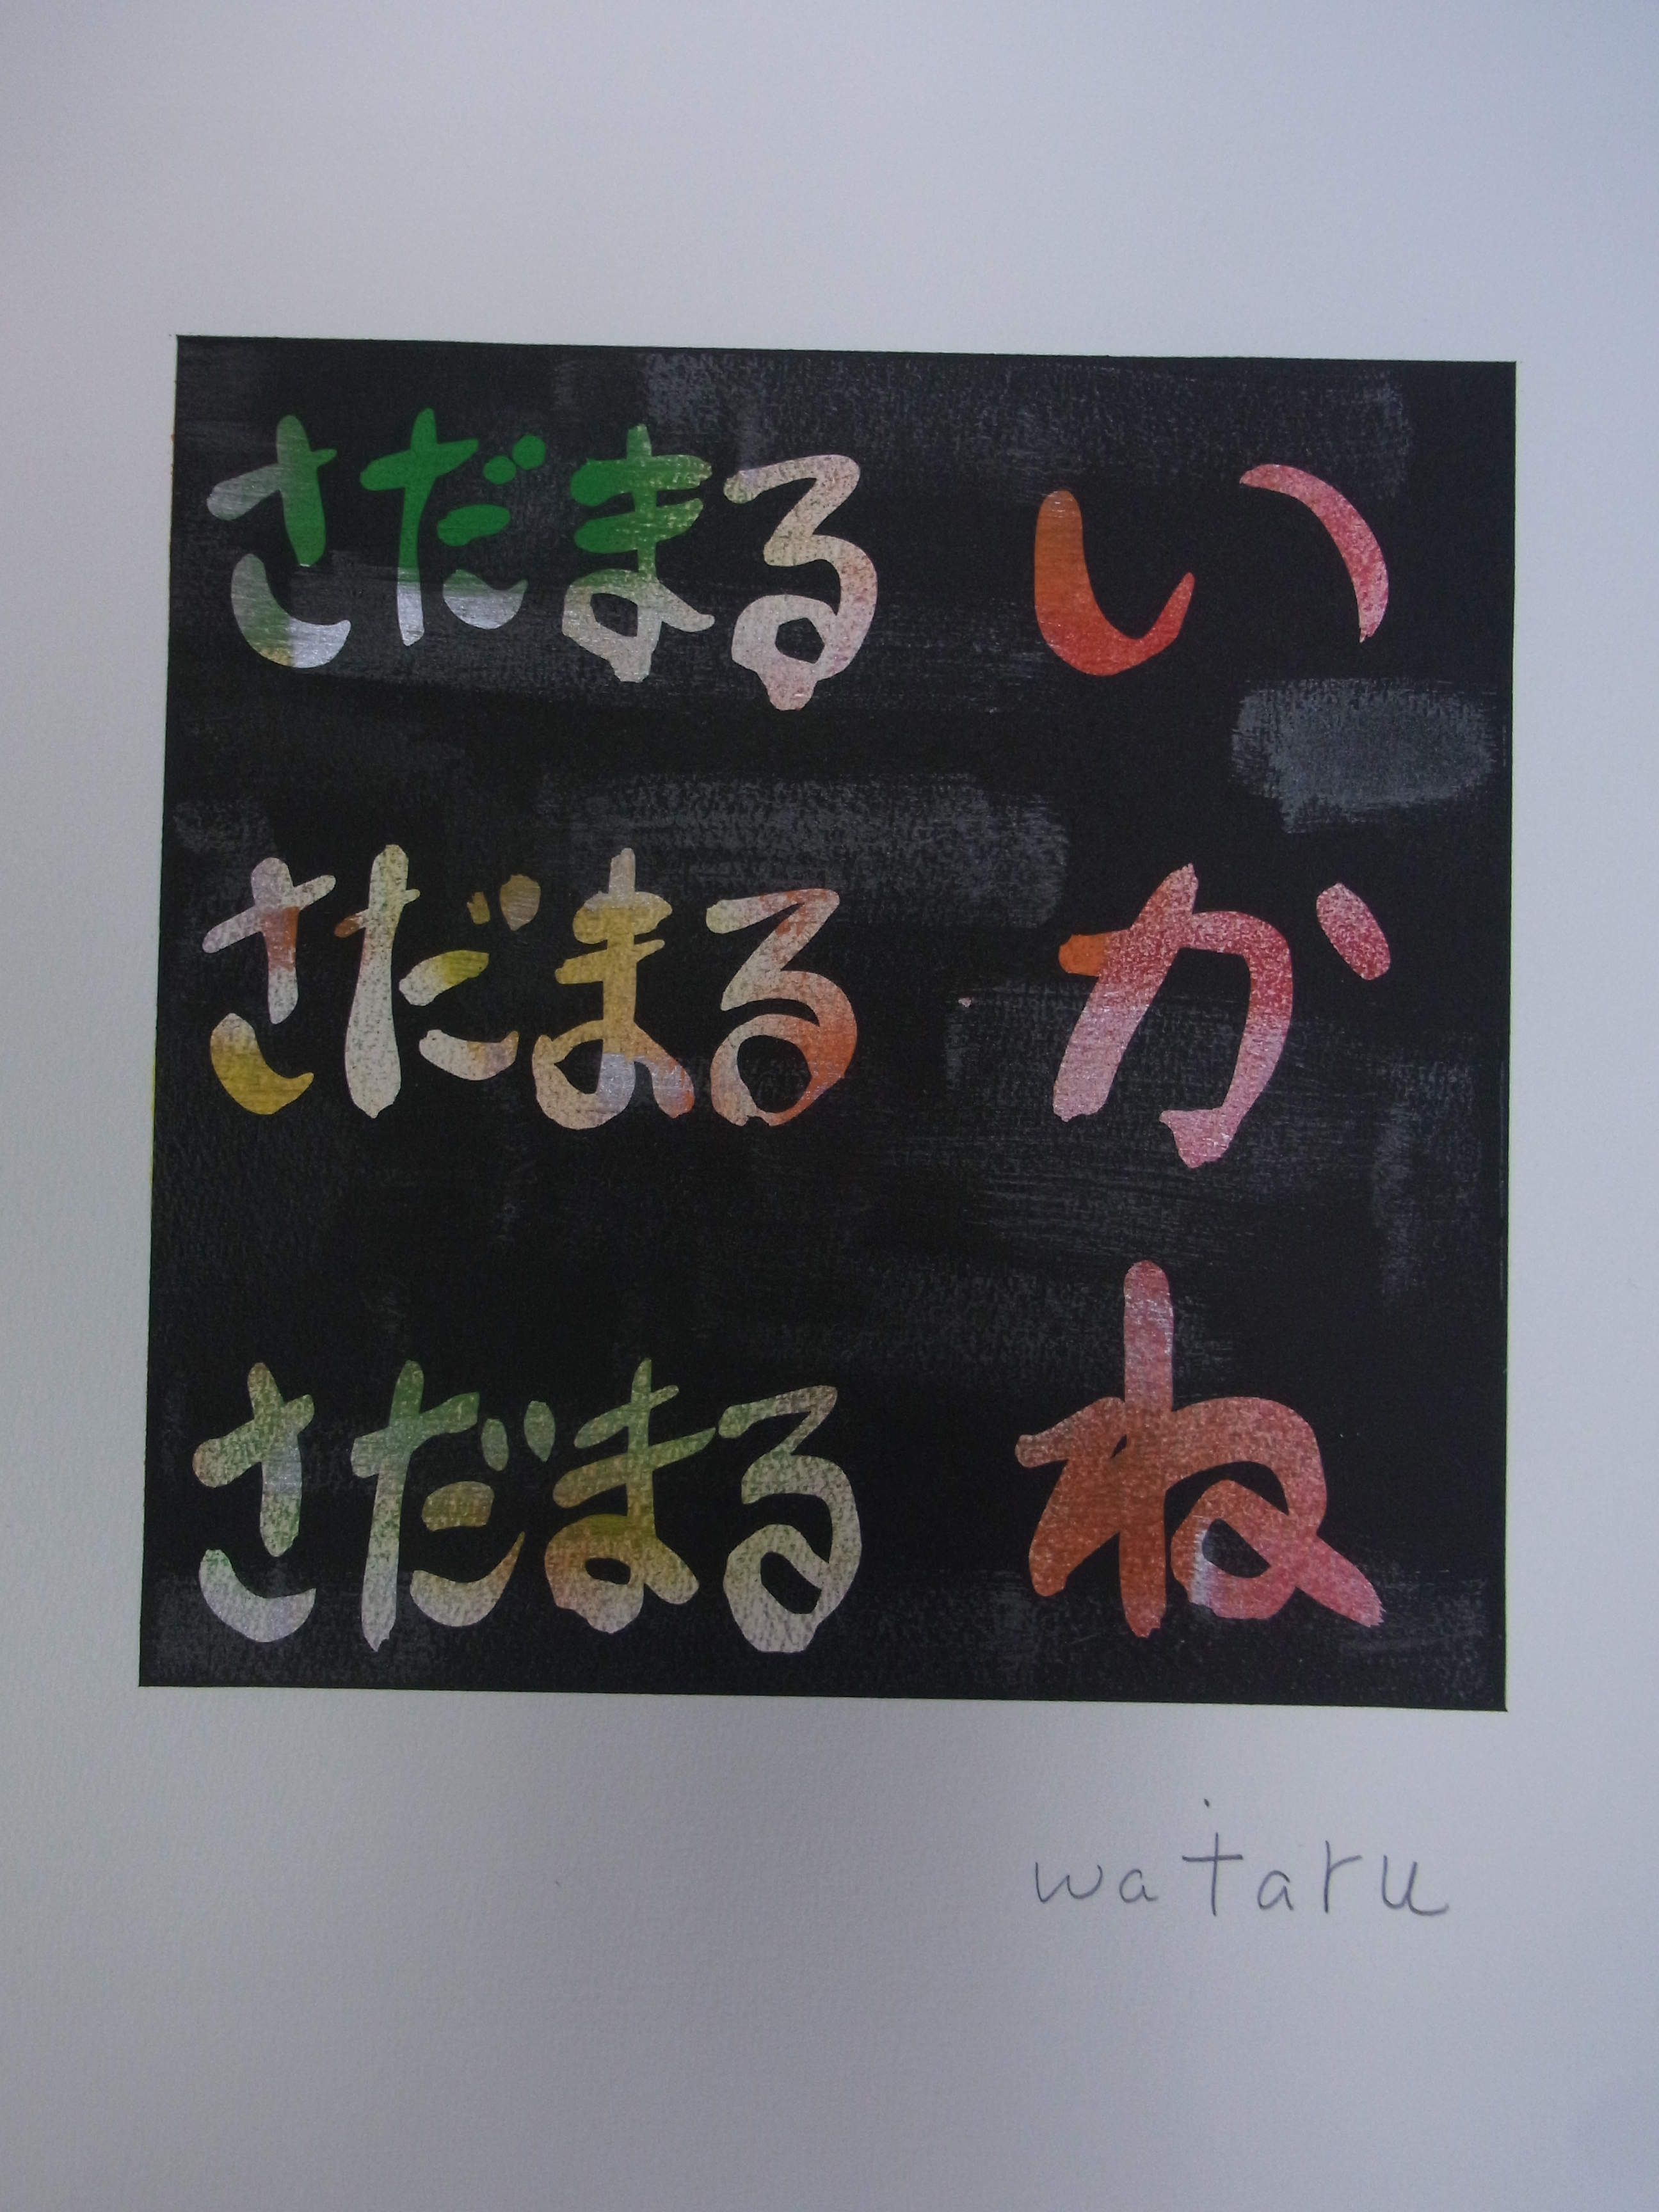 さだまる い
さだまる か
さだまる ね
wataru